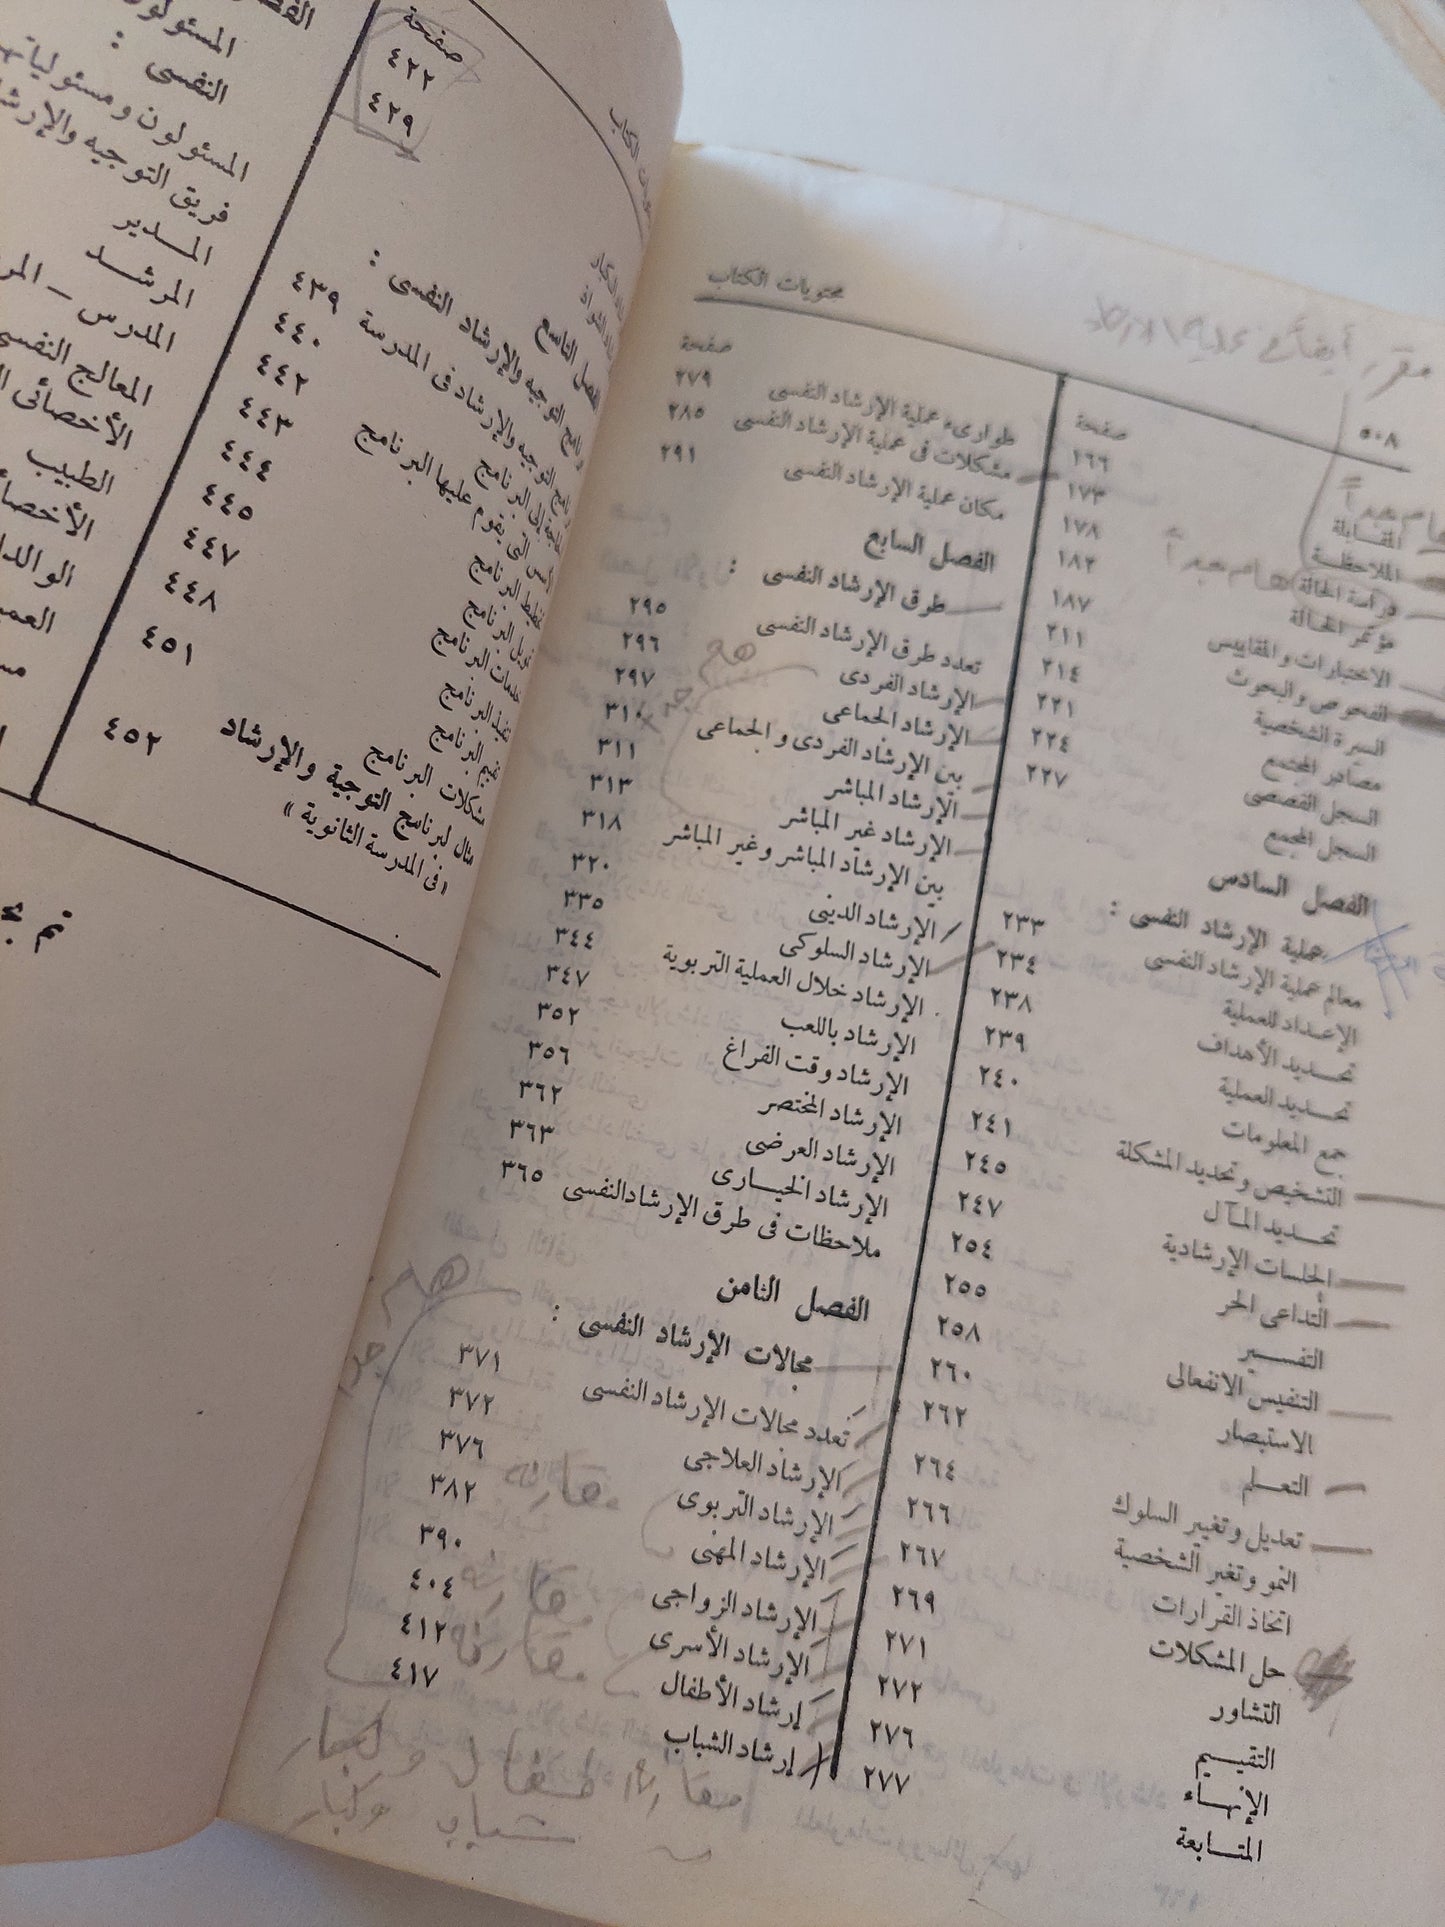 محتويات الكتاب
٥٠٨
صفحة
المقابلة ١٦٦
الملاحظة ١٧٣
دراسة الحالة ١٧٨
مؤتمر الحالة ١٨٢
الاختبارات والمقاييس ١٨٧
الفحوص والبحوث ٢١١
السيرة الشخصية ٢١٤
مصادر المجتمع ٢٢١
السجل القصصى ٢٢٤
السجل المجمع ٢٢٧
الفصل السادس
عملية الإرشاد النفسى :
معالم عملية الإرشاد النفسى ٢٣٣
الإعداد للعملية ٢٣٤
تحديد الأهداف ٢٣٨
تحديد العملية ٢٣٩
جمع المعلومات ٢٤٠
التشخيص وتحديد المشكلة ٢٤١
تحديد المآل ٢٤٥
الجلسات الإرشادية ٢٤٧
التداعى الحر ٢٥٤
التفسير ٢٥٥
التنفيس الانفعالى ٢٥٨
الاستبصار ٢٦٠
التعلم ٢٦٢
تعديل وتغيير السلوك ٢٦٤
النمو وتغير الشخصية ٢٦٦
اتخاذ القرارات ٢٦٧
حل المشكلات ٢٦٩
التشاور ٢٧١
التقييم ٢٧٢
الإنهاء ٢٧٦
المتابعة ٢٧٧
صفحة
طوارىء عملية الإرشاد النفسى ٢٧٩
مشكلات فى عملية الإرشاد النفسى ٢٨٥
مكان عملية الإرشاد النفسى ٢٩١
الفصل السابع
طرق الإرشاد النفسى :
تعدد طرق الإرشاد النفسى ٢٩٥
الإرشاد الفردى ٢٩٦
الإرشاد الجماعى ٢٩٧
بين الإرشاد الفردى والجماعى ٣١٠
الإرشاد المباشر ٣١١
الإرشاد غير المباشر ٣١٣
بين الإرشاد المباشر وغير المباشر ٣١٨
الإرشاد الدينى ٣٢٠
الإرشاد السلوكى ٣٣٥
الإرشاد خلال العملية التربوية ٣٤٤
الإرشاد باللعب ٣٤٧
الإرشاد وقت الفراغ ٣٥٢
الإرشاد المختصر ٣٥٦
الإرشاد العرضى ٣٦٢
الإرشاد الخيارى ٣٦٣
ملاحظات فى طرق الإرشاد النفسى ٣٦٥
الفصل الثامن
مجالات الإرشاد النفسى :
تعدد مجالات الإرشاد النفسى ٣٧١
الإرشاد العلاجى ٣٧٢
الإرشاد التربوى ٣٧٦
الإرشاد المهنى ٣٨٢
الإرشاد الزواجى ٣٩٠
الإرشاد الأسرى ٤٠٤
إرشاد الأطفال ٤١٢
إرشاد الشباب ٤١٧
هام
جدا
صفحة
٤٢٢
٤٢٩
الفصل التاسع
برنامج التوجيه والإرشاد النفسى :
برنامج التوجيه والإرشاد فى المدرسة ٤٣٩
الحاجة إلى البرنامج ٤٤٠
الأسس التى يقوم عليها البرنامج ٤٤٢
تخطيط البرنامج ٤٤٣
تمويل البرنامج ٤٤٤
خدمات البرنامج ٤٤٥
تنفيذ البرنامج ٤٤٧
تقييم البرنامج ٤٤٨
مشكلات البرنامج ٤٥١
مثال لبرنامج التوجية والإرشاد
« فى المدرسة الثانوية » ٤٥٢
المسئولون
النفسى :
المسئولون ومسئولياتهم
فريق التوجيه والإرشاد
المدير
المرشد
المدرس – المر
المعالج النفسى
الأخصائى
الطبيب
الأخصا
الوالدا
العم
تم بح